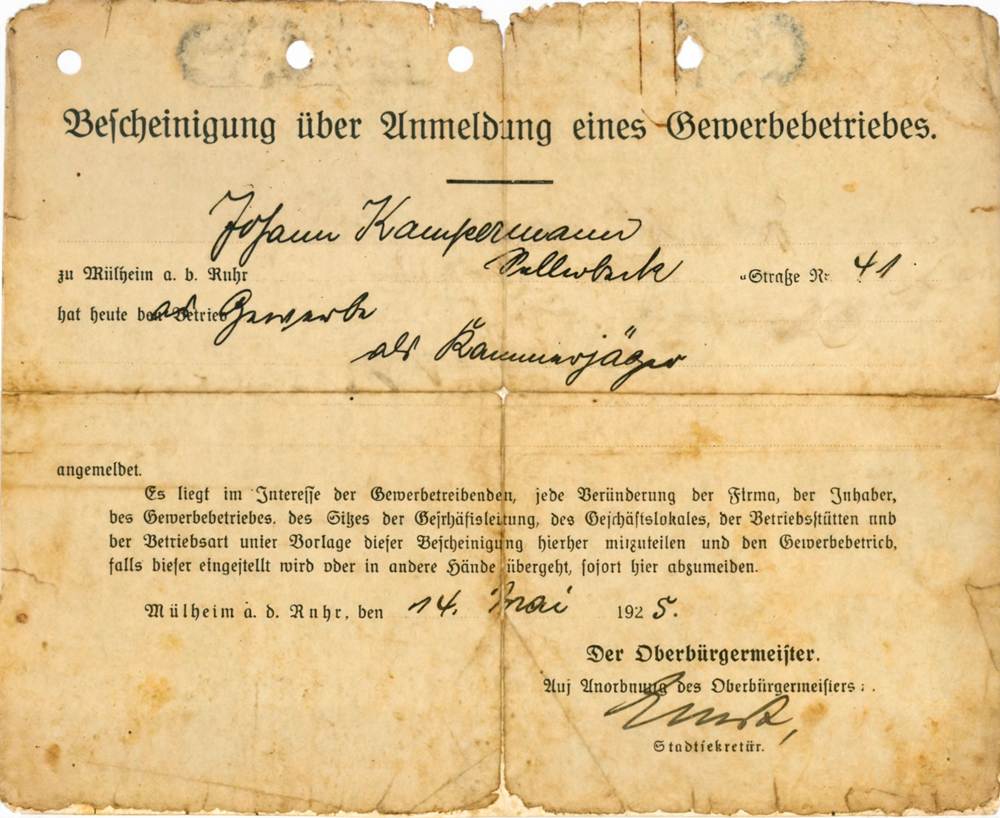 Bescheinigung über Anmeldung eines Gewerbebetriebes.
Johann Kampermann
zu Mülheim a. d. Ruhr Sellerbeck -Straße Nr. 41
hat heute den Betrieb
Gewerbe
als Kammerjäger
angemeldet.
Es liegt im Interesse der Gewerbetreibenden, jede Veründerung der Firma, der Inhaber,
des Gewerbebetriebes. des Sitzes der Geschäftsleitung, des Geschäftslokales, der Betriebsstütten und
der Betriebsart unter Vorlage dieser Bescheinigung hierher mitzuteilen und den Gewerbebetrieb,
falls dieser eingestellt wird oder in andere Hände übergeht, sofort hier abzumeiden.
Mülheim a. d. Ruhr, den 14. Mai 1925.
Der Oberbürgermeister.
Auf Anordnung des Oberbürgermeisters:
Stadtsekretür.